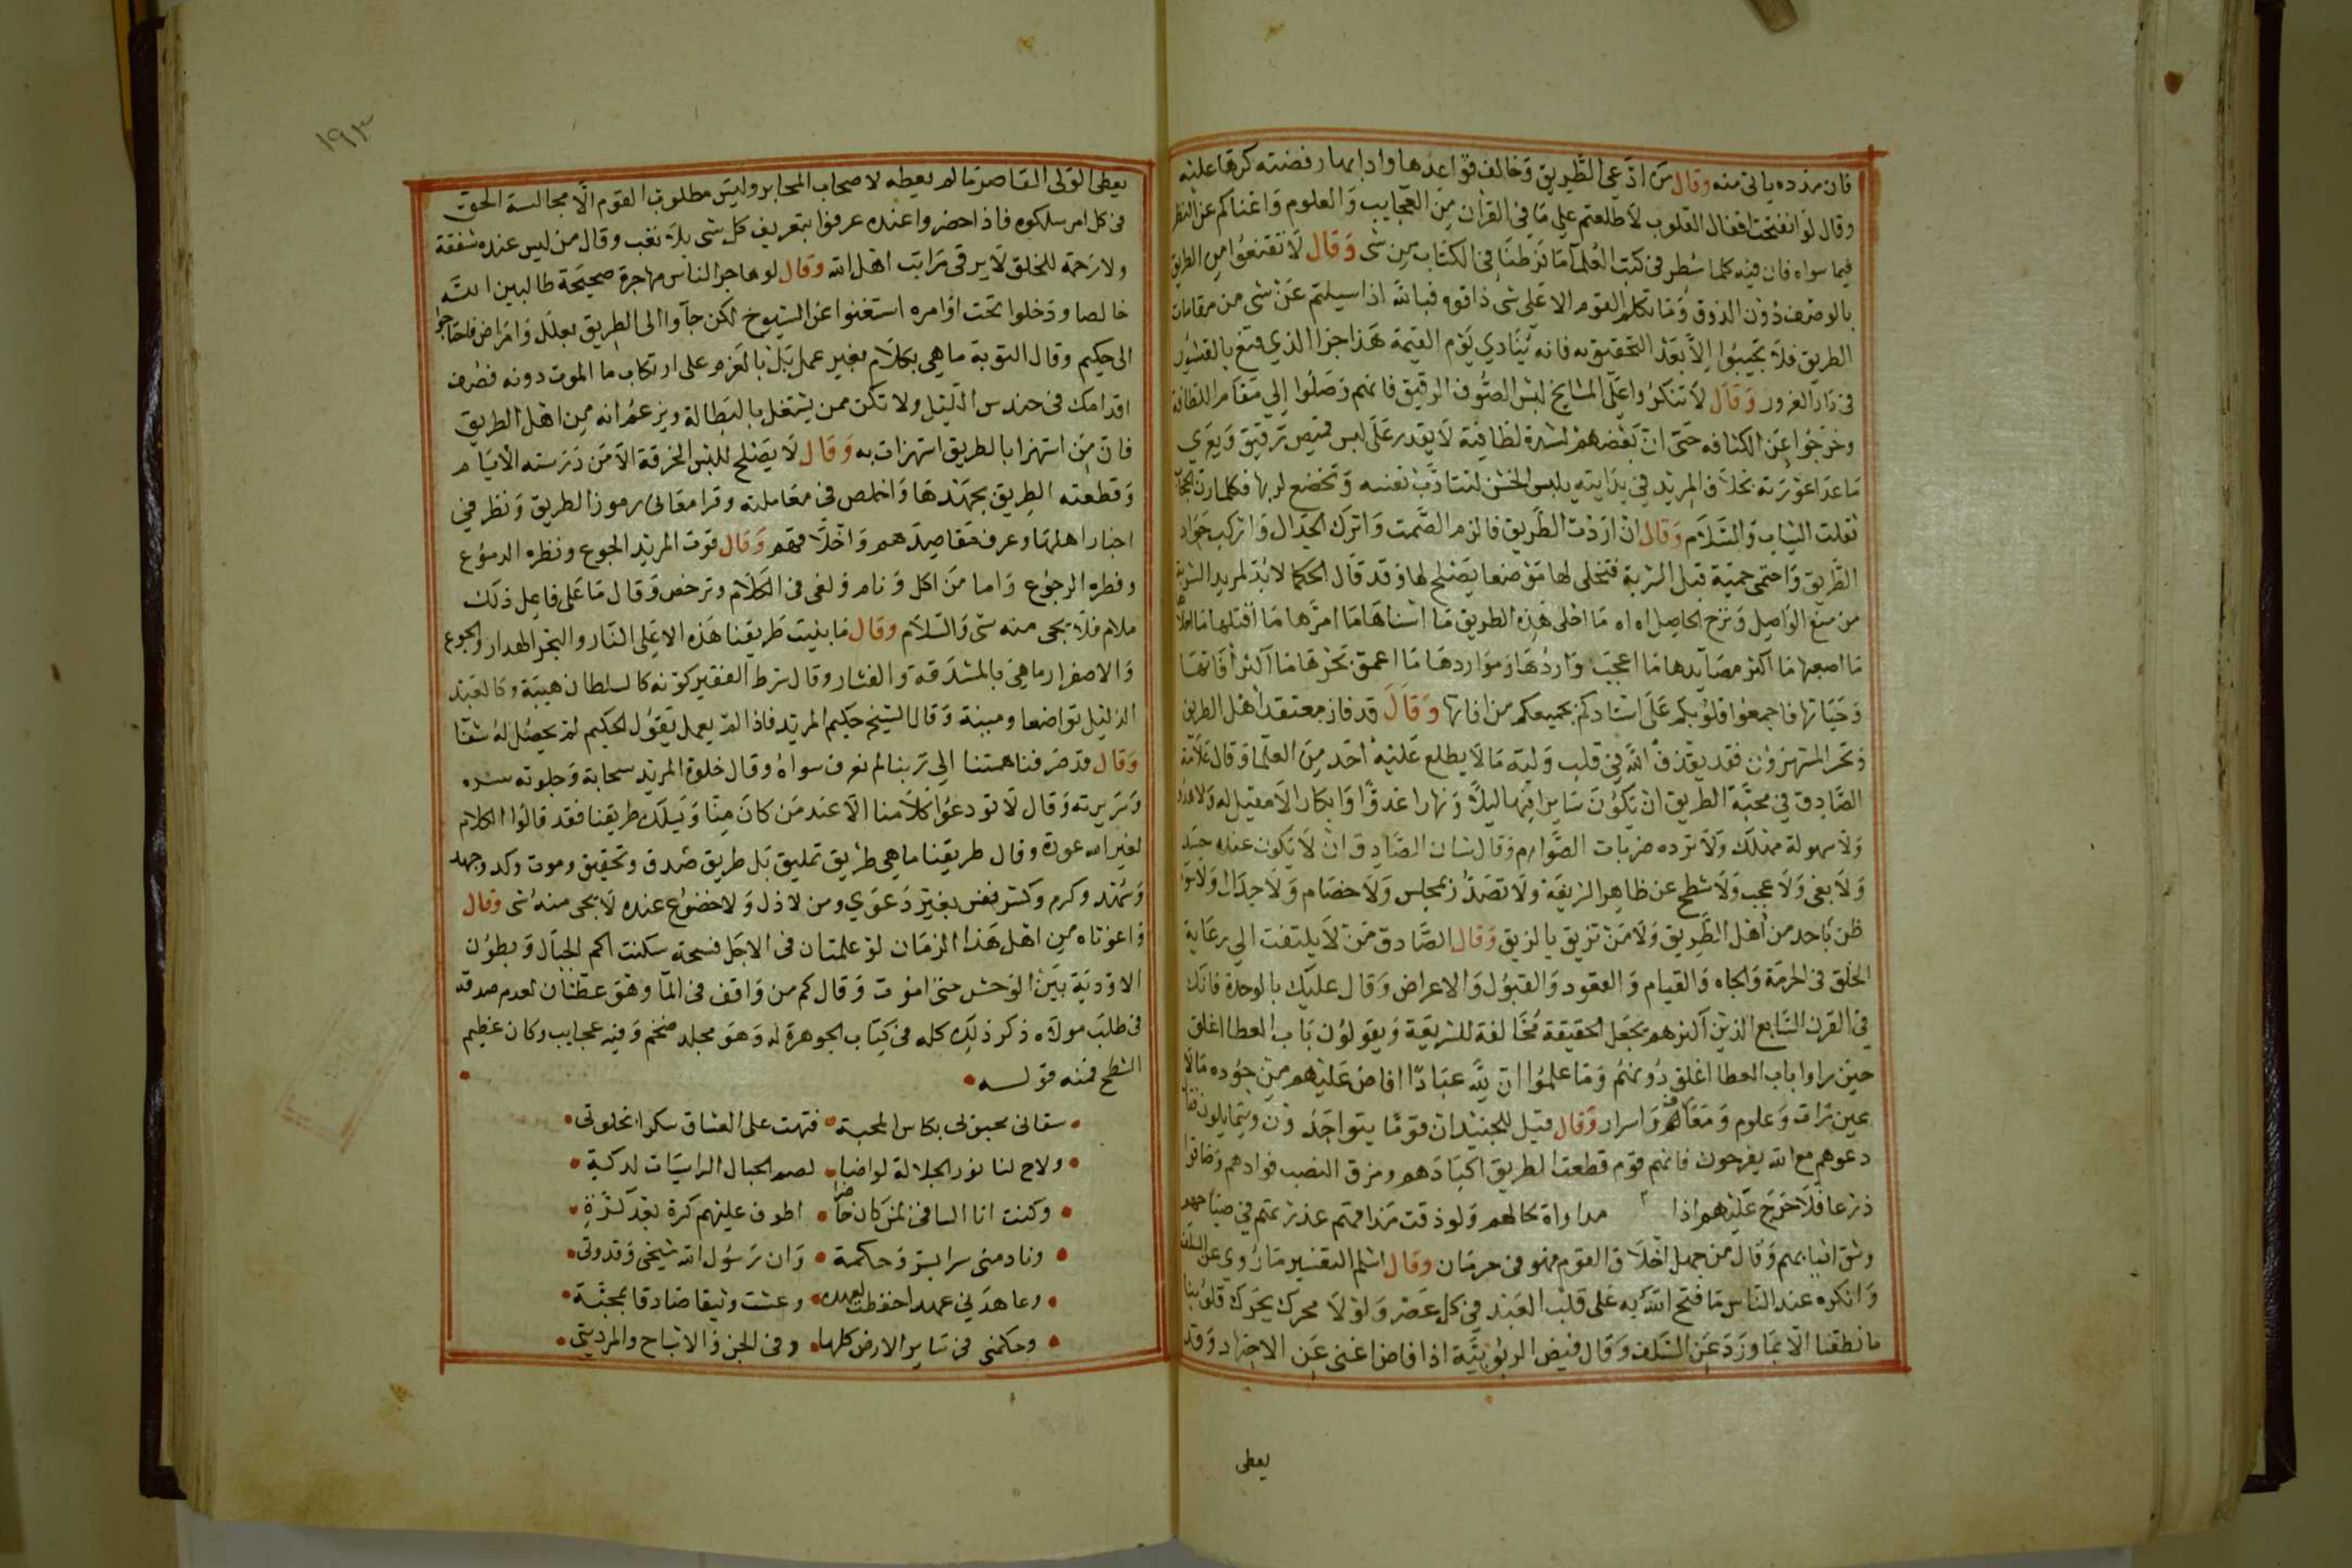 فان مدده ياتى منه وقال من ادعى الطريق وخالف قواعدها وادابها رفضته كرها عليه
وقال لو انفتحت اقفال القلوب لاطلعتم على ما فى القران من العجايب والعلوم واغناكم عن النظر
فيما سواه فان فيه كلما سطر فى كتب العلما ما فرطنا فى الكتاب من شى وقال لا تقنعوا من الطريق
بالوصف دون الذوق وما تكلم القوم الا على شى ذاقوه فبالله اذا سيلتم عن شى من مقامات
الطريق فلا تجيبوا الا بعد التحقيق به فانه ينادي يوم القيمة هذا جزا الذي قنع بالقشور
فى دار الغرور وقال لا تنكروا على المشايخ لبس الصوف الرقيق فانهم وصلوا الى مقام اللطافة
وخرجوا عن الكثافه حتى ان بعضهم لشدة لطافته لا يقدر على لبس قميص رقيق ويعرى
ما عدا عورته بخلاف المريد في بدايته يلبس الخشن لتتادب نفسه وتخضع لربها فكلما رق الحجاب
ثقلت الثياب والسلام وقال ان اردت الطريق فالزم الصمت واترك الجدال واركب جواد
الطريق واحتمى حمية قبل الشربة فتخلى لها موضعا يصلح لها وقد قال الحكما لا بد لمريد الشربة
من منع الواصل ونزح الحاصل اه اه ما احلى هذه الطريق ما اسناها ما امرها ما اقتلها ما احلاها
ما اصعبها ما اكثر مصايدها ما اعجب واردها ومواردها ما اعمق بحرها ما اكثر افاتها
وحياتها فاجمعوا قلوبكم على استادكم يحميكم من افاتها وقال قد فاز معتقد اهل الطريق
وخسر المستهزؤن فقد يقذف الله فى قلب وليه ما لا يطلع عليه احد من العلما وقال علامة
الصادق فى محبة الطريق ان يكون سايرا فيها ليلا ونهارا غدوا وابكارا لا مقيل له ولا هدو
ولا سهولة مهلك ولا ترده ضربات الصوارم وقال شان الصادق ان لا يكون عنده حسد
ولا بغى ولا عجب ولا شطح عن ظاهر الشريعة ولا تصدر فى مجلس ولا خصام ولا جدال ولا سو
ظن باحد من اهل الطريق ولا من تزيق بالزيق وقال الصادق من لا يلتفت الى رعاية
الخلق فى الحرمة والجاه والقيام والقعود والقبول والاعراض وقال عليك بالوحدة فانك
فى القرن السابع الذين اكثرهم يجعل الحقيقة مخالفة للشريعة ويقولون باب العطا اغلق
حين راوا باب العطا اغلق دونهم وما علموا ان لله عبادا افاض عليهم من جوده ما لا
عين رات وعلوم ومعارف واسرار وقال قيل للجنيد ان قوما يتواجدون ويتمايلون فقال
دعوهم مع الله يفرحون فانهم قوم قطعت الطريق اكبادهم ومزق النصب فوادهم وضاقوا
ذرعا فلا حرج عليهم اذا مداواة لحالهم ولو ذقت مذاقهم عذرتهم في صياحهم
وشق اثيابهم وقال من جهل اخلاق القوم فهو فى حرمان وقال اسلم التفسير ما روي عن السلف
وانكره عند الناس ما فتح الله به على قلب العبد فى كل عصر ولولا محرك يحرك قلوبنا
ما نطقنا الا بما ورد عن السلف وقال فيض الربوبية اذا فاض اغنى عن الاجتهاد وقد
يعطى
١٩٣
يعطى الولى القاصر ما لم يعطه لاصحاب المحابر وليس مطلوب القوم الا مجالسة الحق
فى كل امر سلكوه فاذا حضروا عنده عرفوا بتعريف كل شى بلا تعب وقال من ليس عنده شفقة
ولا رحمة للخلق لا يرقى مراتب اهل الله وقال لو هاجر الناس مهاجرة صحيحة طالبين الله
خالصا ودخلوا تحت اوامره استغنوا عن الشيوخ لكن جآوا الى الطريق بعلل وامراض فاحتاجوا
الى حكيم وقال التوبة ما هى بكلام بغير عمل بل بالعزم على ارتكاب ما الموت دونه فصف
اقدامك فى حندس الليل ولا تكن ممن يشتغل بالبطالة ويزعم انه من اهل الطريق
فان من استهزا بالطريق استهزات به وقال لا يصلح للبس الخرقة الا من درسته الايام
وقطعته الطريق بجهدها واخلص فى معاملته وقرا معانى رموز الطريق ونظر في
اخبار اهلها وعرف مقاصدهم واخلاقهم وقال قوت المريد الجوع ونظره الدموع
وفطره الرجوع واما من اكل ونام ولغى فى الكلام وترخص وقال ما على فاعل ذلك
ملام فلا يجى منه شى والسلام وقال ما بنيت طريقنا هذه الا على النار والبحر الهدار والجوع
والاصفرار ما هى بالمشدقة والفشار وقال شرط الفقير كونه كالسلطان هيبة وكالعبد
الذليل تواضعا ومهنة وقال الشيخ حكيم المريد فاذا لم يعمل بقول الحكيم لم يحصل له شفا
وقال قد صرفنا همتنا الى ربنا لم نعرف سواه وقال خلوة المريد سجادة وجلوته سره
وسريرته وقال لا تودعوا كلامنا الا عند من كان منا ويسلك طريقنا فقد قالوا الكلام
لغير اهله عورة وقال طريقنا ما هى طريق تمليق بل طريق صدق وتحقيق وموت وكد وجهد
وسهد وكرم وكسر نفس بغير دعوي ومن لا ذل ولا خضوع عنده لا يجى منه شى وقال
واغوثاه من اهل هذا الزمان لو علمت ان فى الاجل فسحة سكنت اكم الجبال وبطون
الاودية بين الوحش حتى اموت وقال كم من واقف فى الما وهو عطشان لعدم صدقه
فى طلب مولاه ذكر ذلك كله فى كتاب الجوهرة له وهو مجلد ضخم وفيه عجايب وكان عظيم
الشطح فمنه قوله
سقانى محبوبى بكاس المحبة فتهت على العشاق سكرا بخلوتى
ولاح لنا نور الجلالة لو اضا لصم الجبال الراسيات لدكة
وكنت انا الساقى لمن كان حاضرا اطوف عليهم كرة بعد كرة
ونادمنى سرا بسر وحكمة وان رسول الله شيخى وقدوتى
وعاهدنى عهدا حفظت لعهده وعشت وثيقا صادقا بمحبة
وحكمنى فى ساير الارض كلها وفى الجن والاشباح والمرديتى